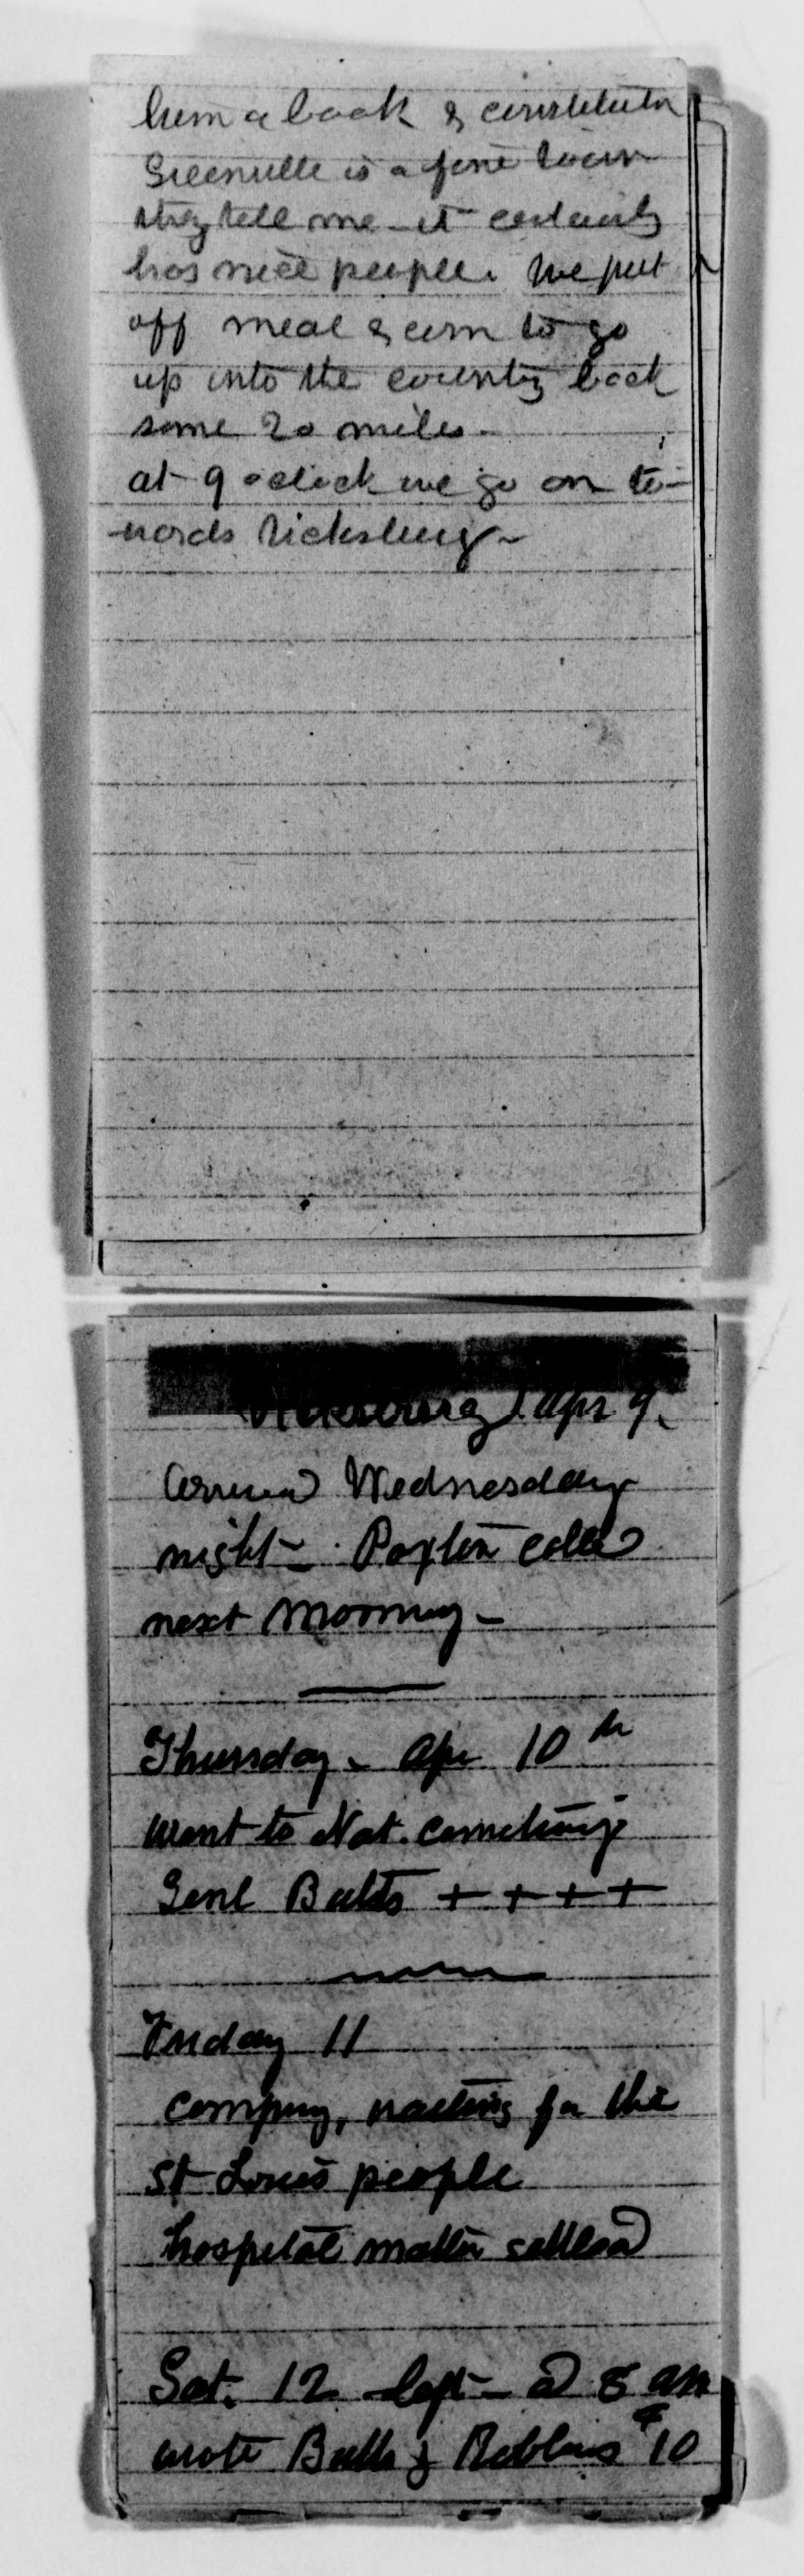 him a book & constitution
Greenville is a fine town
they tell me - it certainly
has nice people. We put
off meal & corn to go
up into the country back
some 20 miles -
at 9 oclock we go on to-
wards Vicksburg -
Vicksburg. Apr 9.
Arrived Wednesday
night - Paxton called
next morning -
Thursday - Apr 10th
went to Nat. cemetery
Genl Batts + + + +
Friday 11
company, waiting for the
St Louis people
hospital matter settled
Sat. 12 left - at 8 am
wrote Bulls & Robbins 10